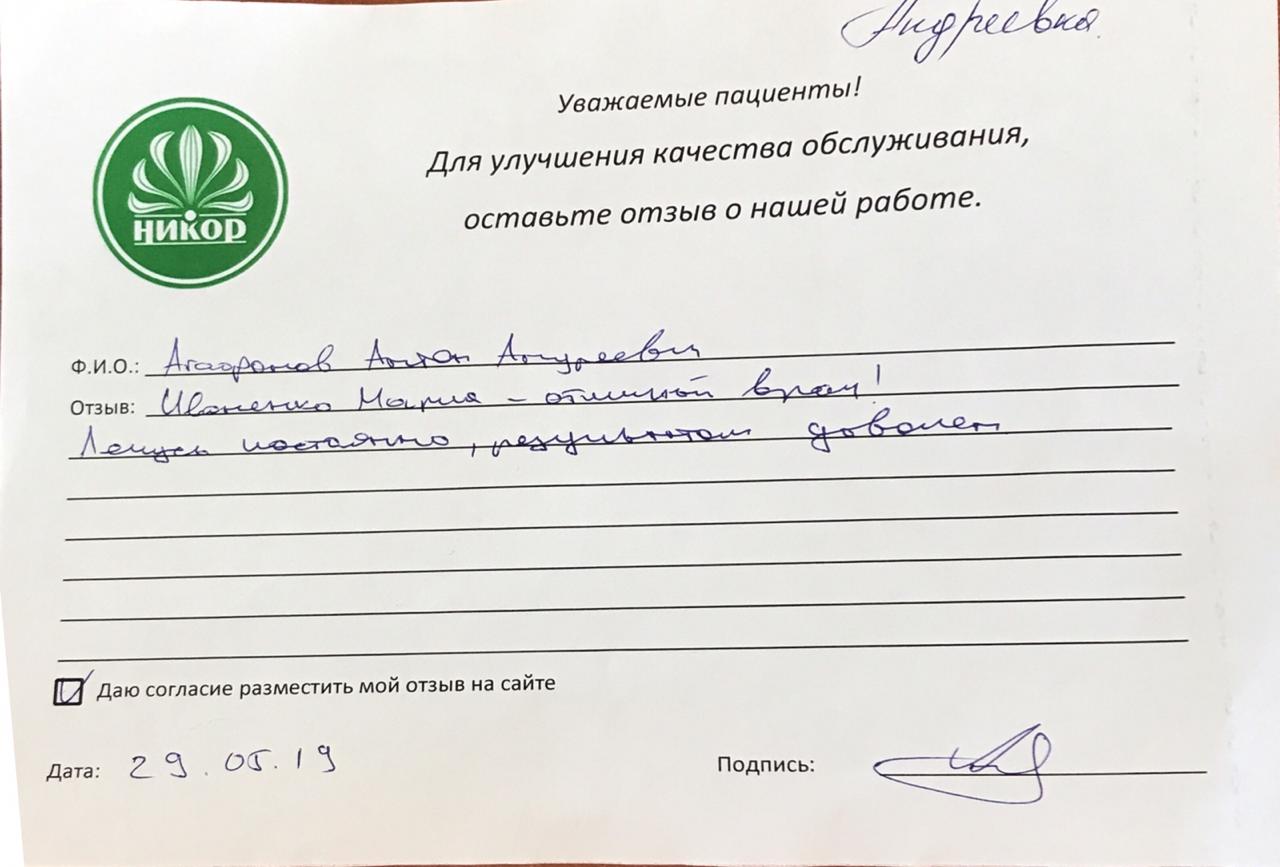 Андреевка.
Уважаемые пациенты!
Для улучшения качества обслуживания,
оставьте отзыв о нашей работе.
НИКОР
Ф.И.О.: Агафонов Антон Андреевич
Отзыв: Иваненко Мария - отличный врач!
Лечусь постоянно, результатом доволен
Даю согласие разместить мой отзыв на сайте
Дата: 29.05.19
Подпись: